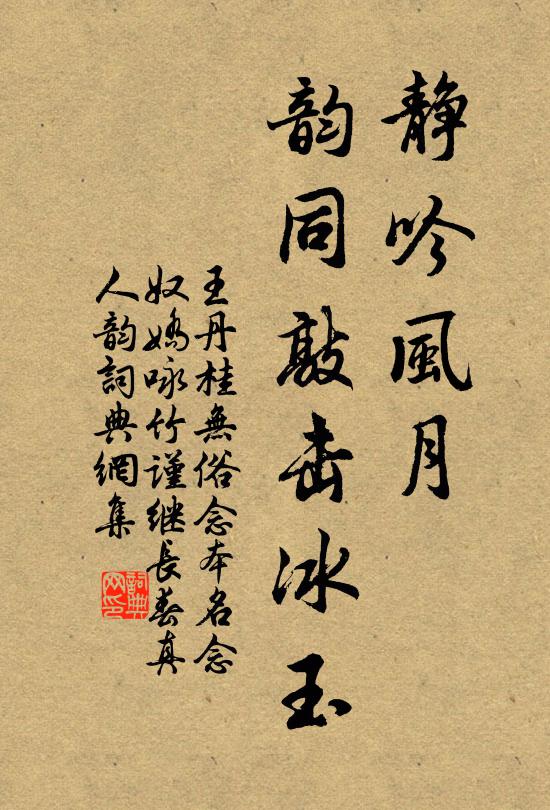 静吟風月
韵同敲击冰玉
王丹桂無俗念本名念
奴嬌咏竹謹继長春真
人韵詞典網集
詞典
网印